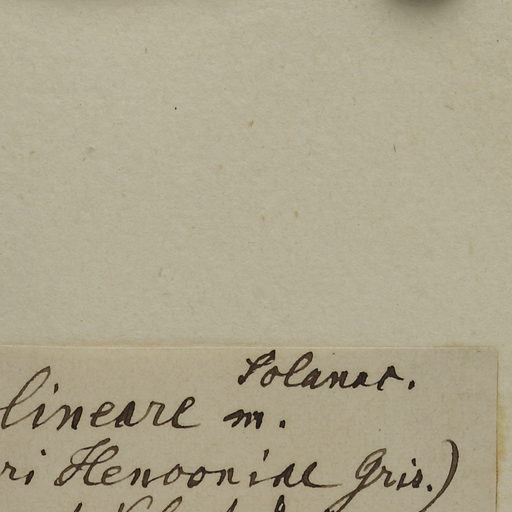 Solanac.
lineare m.
ri Henooniae Gris.)